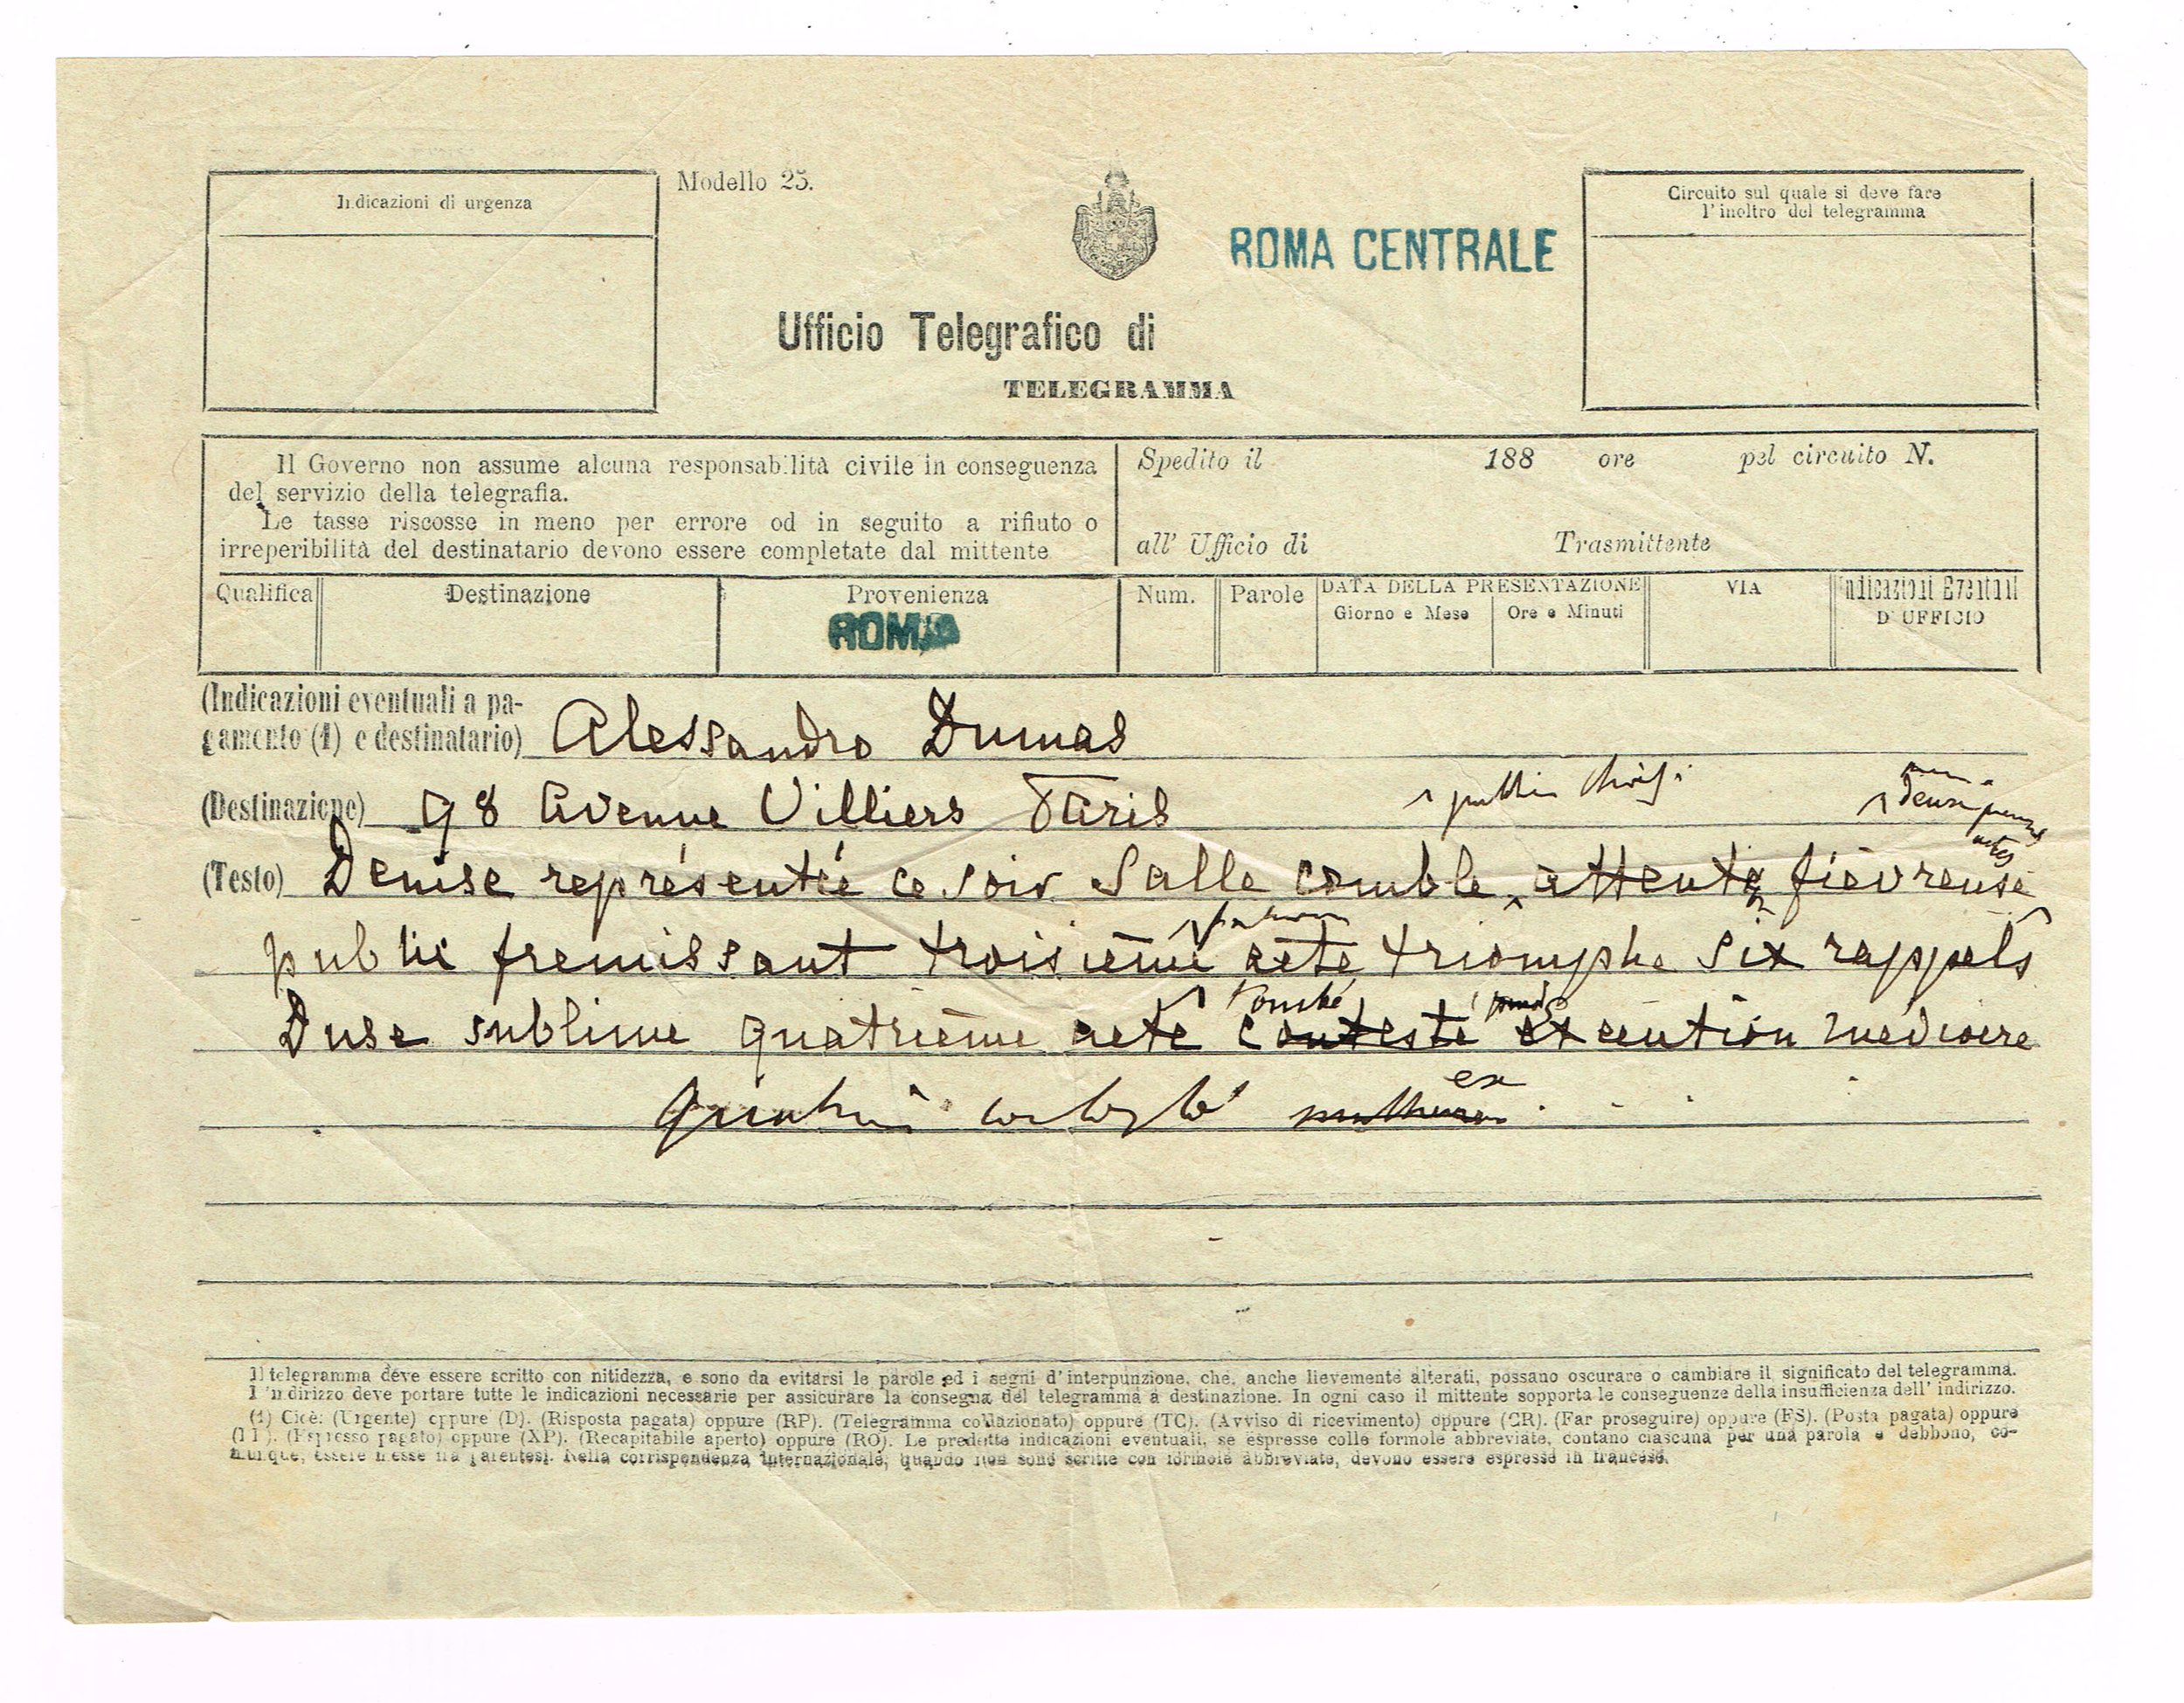 Indicazioni di urgenza
Modello 25.
ROMA CENTRALE
Circuito sul quale si deve fare
l'inoltro del telegramma
Ufficio Telegrafico di
TELEGRAMMA
Il Governo non assume alcuna responsabilità civile in conseguenza
del servizio della telegrafia.
Le tasse riscosse in meno per errore od in seguito a rifiuto o
irreperibilità del destinatario devono essere completate dal mittente
Spedito il 188 ore pel circuito N.
all' Ufficio di Trasmittente
Qualifica Destinazione Provenienza Num. Parole DATA DELLA PRESENTAZIONE VIA Indicazioni Eventuali
Giorno e Mese Ore e Minuti D'UFFICIO
ROMA
(Indicazioni eventuali a pa-
gamento (1) e destinatario) Alessandro Dumas
(Destinazione) 98 Avenue Villiers Paris
public choisi
actes
(Testo) Denise représentée ce soir Salle comble attente fièvreuse
public fremissant troisième acte triomphe six rappels
tombé
Duse sublime quatrième acte conteste execution mediocre
ex
Il telegramma deve essere scritto con nitidezza, e sono da evitarsi le parole ed i segni d'interpunzione, che, anche lievemente alterati, possano oscurare o cambiare il significato del telegramma.
L'indirizzo deve portare tutte le indicazioni necessarie per assicurare la consegna del telegramma a destinazione. In ogni caso il mittente sopporta le conseguenze della insufficienza dell'indirizzo.
(1) Cioè: (Urgente) oppure (D). (Risposta pagata) oppure (RP). (Telegramma collazionato) oppure (TC). (Avviso di ricevimento) oppure (CR). (Far proseguire) oppure (FS). (Posta pagata) oppure
(Espresso pagato) oppure (XP). (Recapitabile aperto) oppure (RO). Le predette indicazioni eventuali, se espresse colle formole abbreviate, contano ciascuna per una parola e debbono, co-
munque, essere messe fra parentesi. Nella corrispondenza internazionale, quando non sono scritte con formole abbreviate, devono essere espresse in francese.